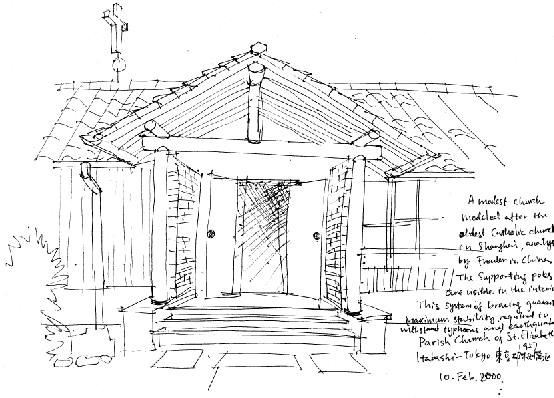 A modest church
modeled after the
oldest Catholic church
in Shanghai,
by in China
The Supporting poles
are visible to the interior
This system of bracing
maximum stability required to
withstand typhoons and earthquakes
Parish Church of St. Elizabeth
Itabashi-Tokyo 東京
10. Feb. 2000.